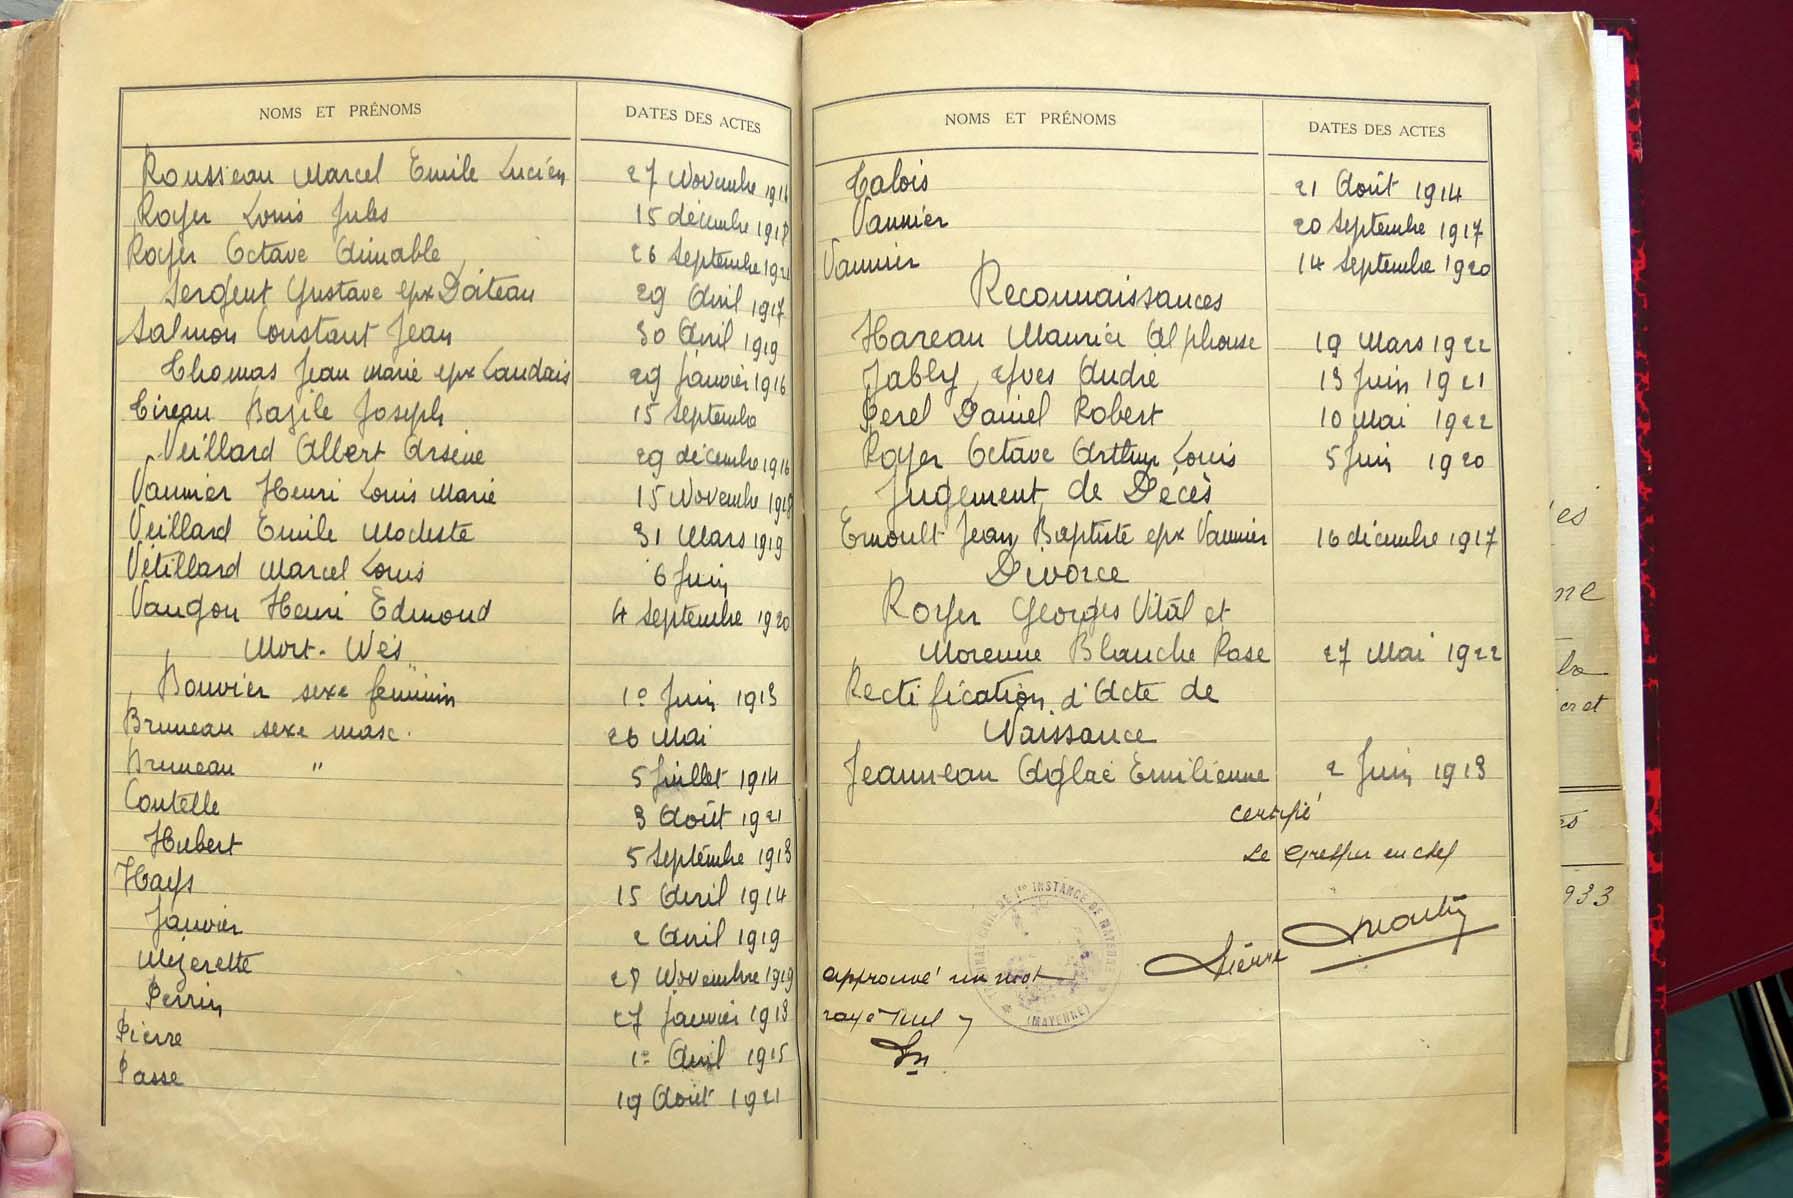 NOMS ET PRÉNOMS DATES DES ACTES
Rousseau Marcel Emile Lucien 27 Novembre 1916
Royer Louis Jules 15 décembre 1918
Royer Octave Aimable 26 Septembre 1921
Sergent Gustave epx Doiteau 29 Avril 1917
Salmon Constant Jean 30 Avril 1919
Thomas Jean Marie epx Landais 29 Janvier 1916
Tireau Bazile Joseph 15 Septembre
Veillard Albert Arsène 29 décembre 1916
Vannier Henri Louis Marie 15 Novembre 1918
Veillard Emile Modeste 31 Mars 1919
Vétillard Marcel Louis 6 Juin
Vaugon Henri Edmond 4 Septembre 1920
Mort-Nés
Bouvier sexe feminin 1° Juin 1913
Bruneau sexe masc. 26 Mai
Bruneau " 5 Juillet 1914
Coutelle 3 Août 1921
Hubert 5 Septembre 1913
Hays 15 Avril 1914
Janvier 2 Avril 1919
Mézerette 28 Novembre 1919
Perrin 27 Janvier 1913
Pierre 1° Avril 1915
Passe 19 Août 1921
NOMS ET PRÉNOMS DATES DES ACTES
Talois 21 Août 1914
Vannier 20 Septembre 1917
Vannier 14 Septembre 1920
Reconnaissances
Hareau Maurice Alphonse 19 Mars 1922
Jably, Yves André 13 Juin 1921
Perel Daniel Robert 10 Mai 1922
Royer Octave Arthur Louis 5 Juin 1920
Jugement de Décès
Ernoult Jean Baptiste epx Vannier 16 décembre 1917
Divorce
Royer Georges Vital et
Morenne Blanche Rose 27 Mai 1922
Rectification d'Acte de
Naissance
Jeanneau Aglaé Emilienne 2 Juin 1913
Certifié
Le Greffier en chef
approuvé un mot
rayé nul
TRIBUNAL CIVIL DE 1re INSTANCE DE MAYENNE
(MAYENNE)
es
ne
la
et
933